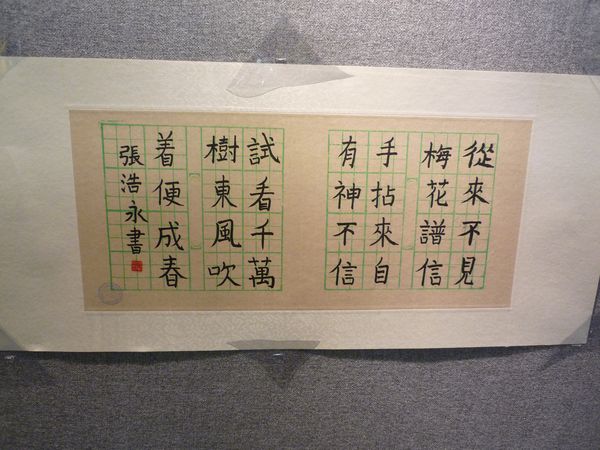 從來不見
梅花譜信
手拈來自
有神不信
試看千萬
樹東風吹
着便成春
張浩永書